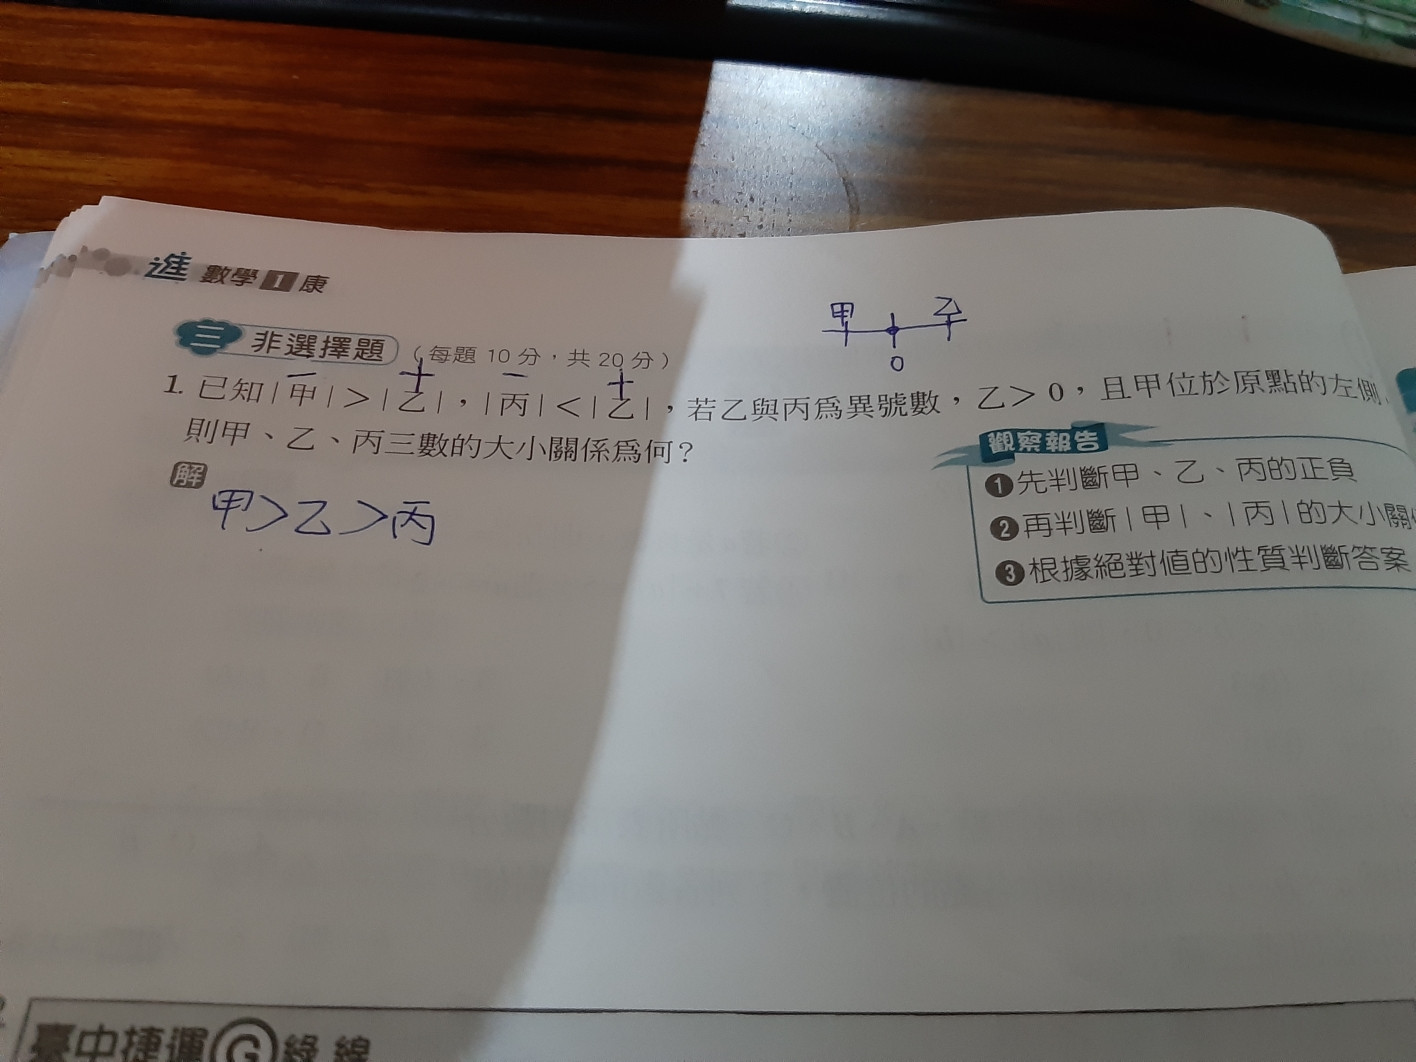 進 數學 1 康
甲 乙
0
三 非選擇題（每題 10 分，共 20 分）
－ ＋ － ＋
1. 已知｜甲｜＞｜乙｜，｜丙｜＜｜乙｜，若乙與丙為異號數，乙＞0，且甲位於原點的左側，
則甲、乙、丙三數的大小關係為何？
觀察報告
❶先判斷甲、乙、丙的正負
❷再判斷｜甲｜、｜丙｜的大小關
❸根據絕對值的性質判斷答案
解
甲＞乙＞丙
臺中捷運 G 綠線